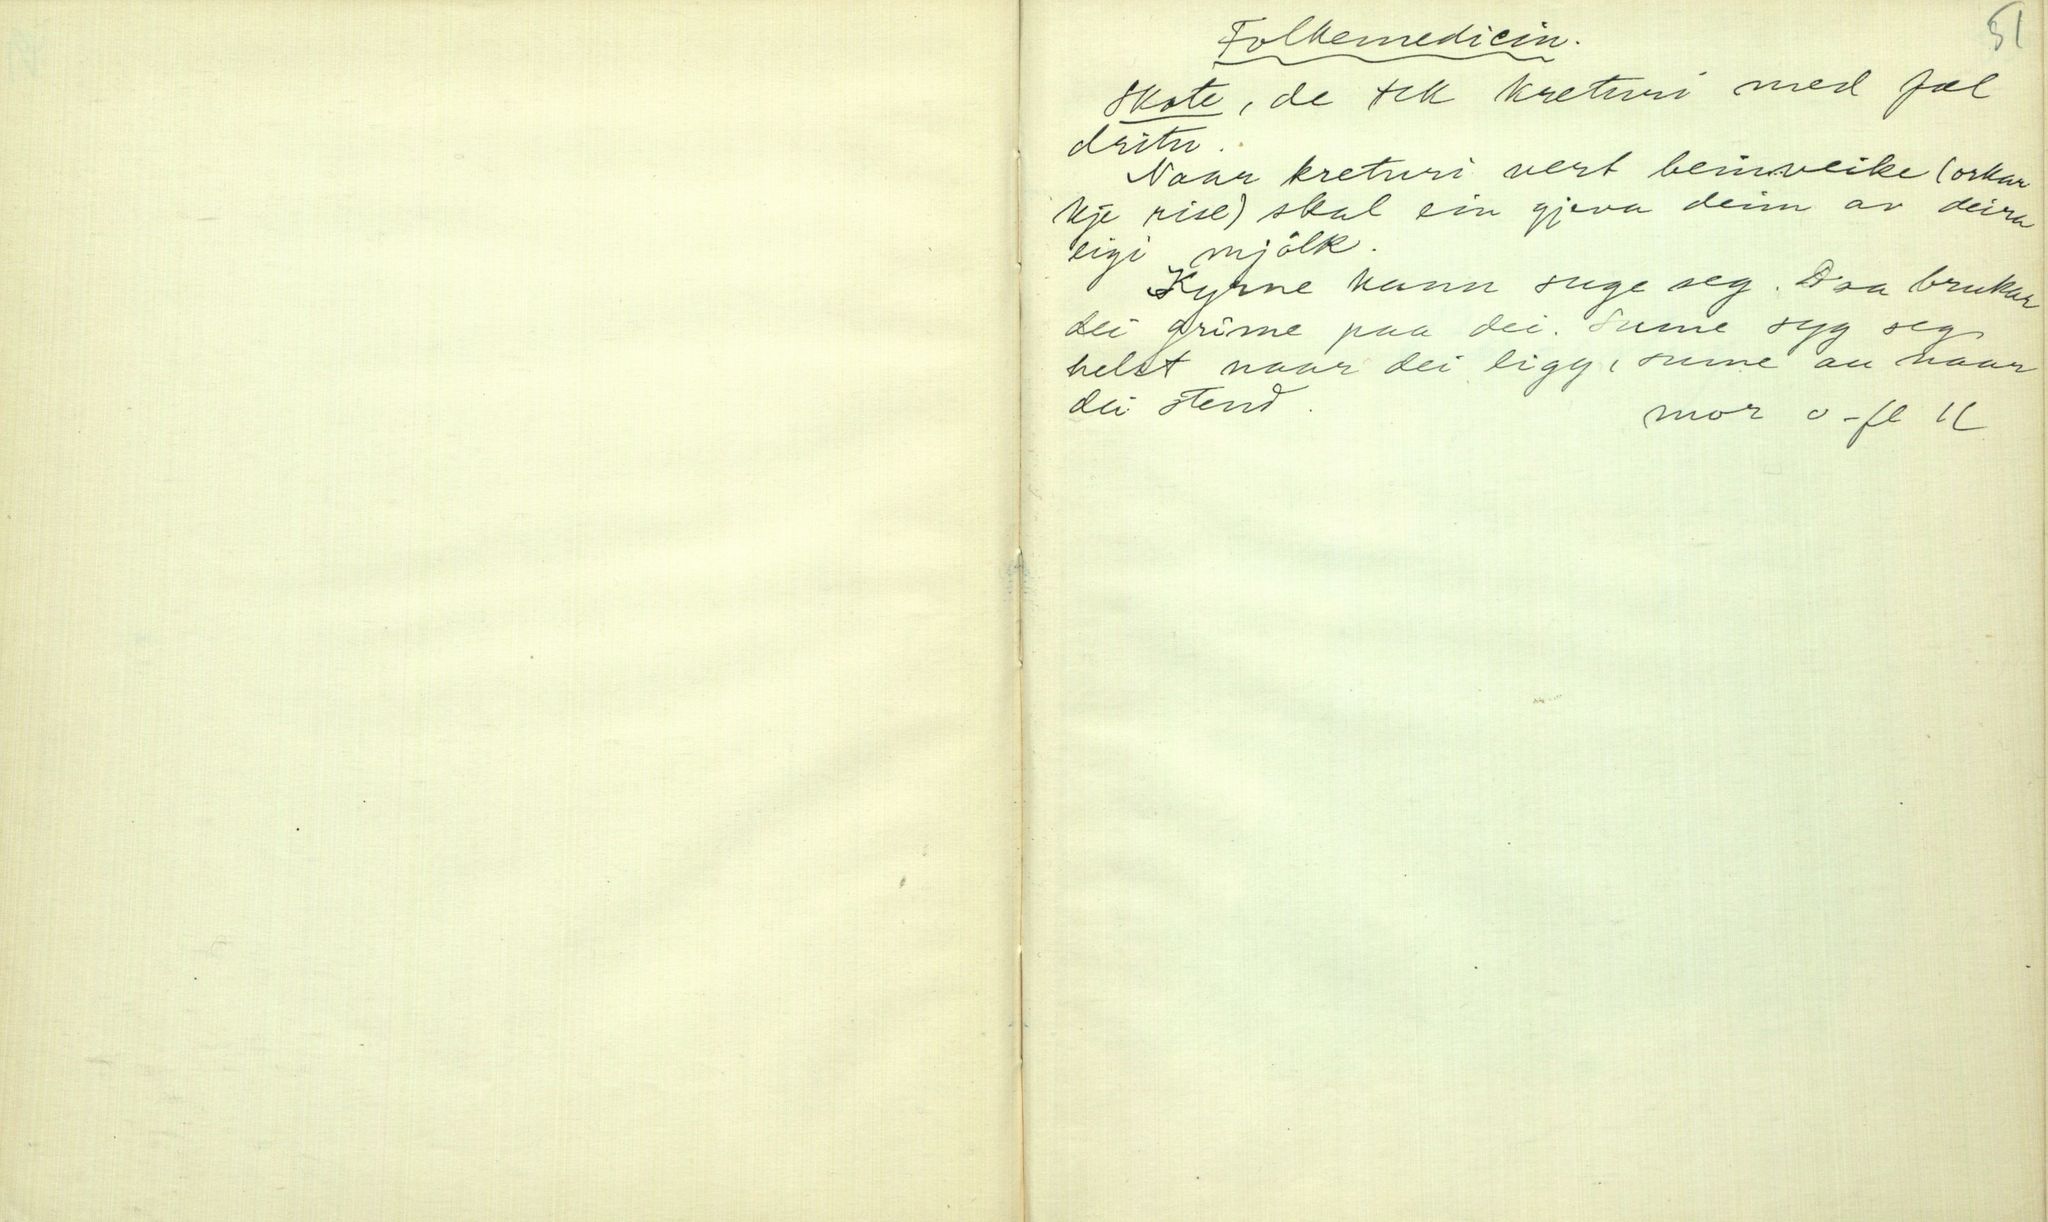 51
Folkemedicin.
Skote, de tek kreturi med fæl
dritn.
Naar kreturi vert beinveike (orkar
kje rise) skal ein gjeva deim av deira
eigi mjölk.
Kyrne kann suge seg. Daa brukar
dei grime paa dei. Sume syg seg
helst naar dei ligg, sume au naar
dei stend.
mor o-fl